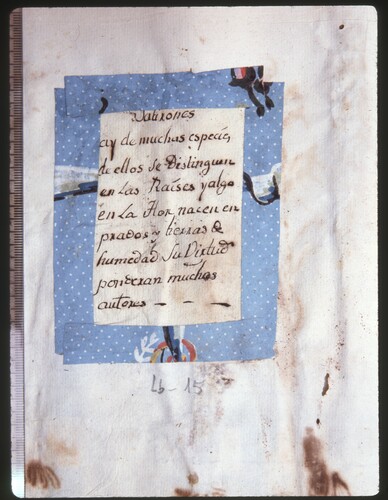 Satirones
ay de muchas especies,
de ellos se Distinguen
en las Raíses y algo
en La Flor, nacen en
prados y tierras de
humedad Su Virtud
ponderan muchos
autores — — —
Lb-15